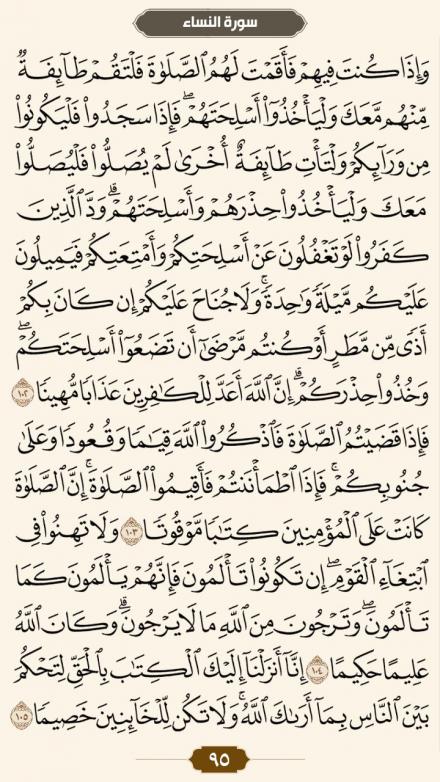 سورة النساء
وَإِذَا كُنتَ فِيهِمْ فَأَقَمْتَ لَهُمُ ٱلصَّلَوٰةَ فَلْتَقُمْ طَآئِفَةٌ
مِّنْهُم مَّعَكَ وَلْيَأْخُذُوٓا۟ أَسْلِحَتَهُمْ ۖ فَإِذَا سَجَدُوا۟ فَلْيَكُونُوا۟
مِن وَرَآئِكُمْ وَلْتَأْتِ طَآئِفَةٌ أُخْرَىٰ لَمْ يُصَلُّوا۟ فَلْيُصَلُّوا۟
مَعَكَ وَلْيَأْخُذُوا۟ حِذْرَهُمْ وَأَسْلِحَتَهُمْ ۗ وَدَّ ٱلَّذِينَ
كَفَرُوا۟ لَوْ تَغْفُلُونَ عَنْ أَسْلِحَتِكُمْ وَأَمْتِعَتِكُمْ فَيَمِيلُونَ
عَلَيْكُم مَّيْلَةً وَٰحِدَةً ۚ وَلَا جُنَاحَ عَلَيْكُمْ إِن كَانَ بِكُمْ
أَذًى مِّن مَّطَرٍ أَوْ كُنتُم مَّرْضَىٰٓ أَن تَضَعُوٓا۟ أَسْلِحَتَكُمْ ۖ
وَخُذُوا۟ حِذْرَكُمْ ۗ إِنَّ ٱللَّهَ أَعَدَّ لِلْكَـٰفِرِينَ عَذَابًا مُّهِينًا ١٠٢
فَإِذَا قَضَيْتُمُ ٱلصَّلَوٰةَ فَٱذْكُرُوا۟ ٱللَّهَ قِيَـٰمًا وَقُعُودًا وَعَلَىٰ
جُنُوبِكُمْ ۚ فَإِذَا ٱطْمَأْنَنتُمْ فَأَقِيمُوا۟ ٱلصَّلَوٰةَ ۚ إِنَّ ٱلصَّلَوٰةَ
كَانَتْ عَلَى ٱلْمُؤْمِنِينَ كِتَـٰبًا مَّوْقُوتًا ١٠٣ وَلَا تَهِنُوا۟ فِى
ٱبْتِغَآءِ ٱلْقَوْمِ ۖ إِن تَكُونُوا۟ تَأْلَمُونَ فَإِنَّهُمْ يَأْلَمُونَ كَمَا
تَأْلَمُونَ ۖ وَتَرْجُونَ مِنَ ٱللَّهِ مَا لَا يَرْجُونَ ۗ وَكَانَ ٱللَّهُ
عَلِيمًا حَكِيمًا ١٠٤ إِنَّآ أَنزَلْنَآ إِلَيْكَ ٱلْكِتَـٰبَ بِٱلْحَقِّ لِتَحْكُمَ
بَيْنَ ٱلنَّاسِ بِمَآ أَرَىٰكَ ٱللَّهُ ۚ وَلَا تَكُن لِّلْخَآئِنِينَ خَصِيمًا ١٠٥
٩٥